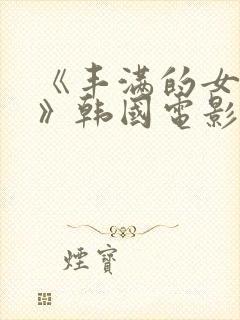 《丰满的女
》韩國电影
煙寶